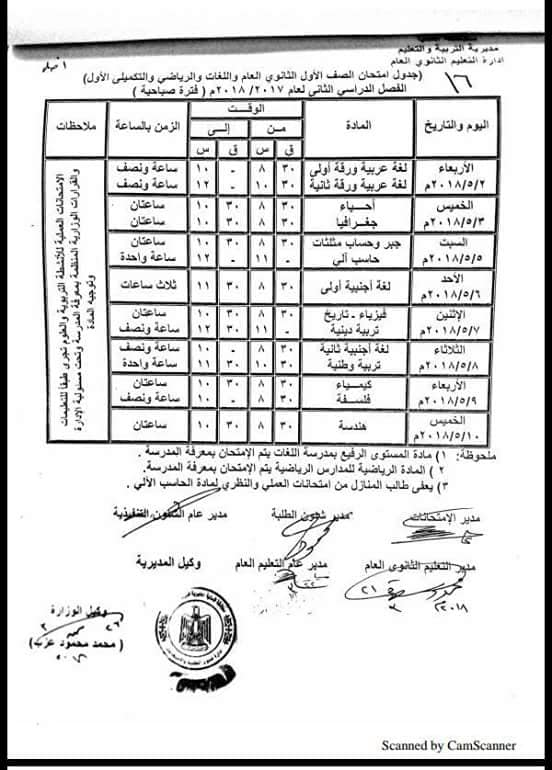 مديرية التربية والتعليم
إدارة التعليم الثانوي العام
١٦
(جدول امتحان الصف الأول الثانوي العام واللغات والرياضي والتكميلى الأول)
الفصل الدراسي الثاني لعام ٢٠١٧/ ٢٠١٨م ( فترة صباحية )
اليوم والتاريخ المادة الوقت الزمن بالساعة ملاحظات
من إلى
ق س ق س
الأربعاء ٢٠١٨/٥/٢م
لغة عربية ورقة أولى ٣٠ ٨ - ١٠ ساعة ونصف
لغة عربية ورقة ثانية ٣٠ ١٠ - ١٢ ساعة ونصف
الخميس ٢٠١٨/٥/٣م
أحياء ٣٠ ٨ ٣٠ ١٠ ساعتان
جغرافيا ٣٠ ٨ ٣٠ ١٠ ساعتان
السبت ٢٠١٨/٥/٥م
جبر وحساب مثلثات ٣٠ ٨ ٣٠ ١٠ ساعتان
حاسب آلي - ١١ - ١٢ ساعة واحدة
الأحد ٢٠١٨/٥/٦م
لغة أجنبية أولى ٣٠ ٨ ٣٠ ١١ ثلاث ساعات
الإثنين ٢٠١٨/٥/٧م
فيزياء - تاريخ ٣٠ ٨ ٣٠ ١٠ ساعتان
تربية دينية - ١١ ٣٠ ١٢ ساعة ونصف
الثلاثاء ٢٠١٨/٥/٨م
لغة أجنبية ثانية ٣٠ ٨ - ١٠ ساعة ونصف
تربية وطنية ٣٠ ١٠ ٣٠ ١١ ساعة واحدة
الأربعاء ٢٠١٨/٥/٩م
كيمياء ٣٠ ٨ ٣٠ ١٠ ساعتان
فلسفة ٣٠ ٨ - ١٠ ساعة ونصف
الخميس ٢٠١٨/٥/١٠م
هندسة ٣٠ ٨ ٣٠ ١٠ ساعتان
الامتحانات العملية للأنشطة التربوية والعلوم تجرى طبقاً للتعليمات
والقرارات الوزارية المنظمة بمعرفة المدرسة وتحت مسئولية الإدارة
وتوجيه المادة
ملحوظة: ١) مادة المستوى الرفيع بمدرسة اللغات يتم الإمتحان بمعرفة المدرسة .
٢ ) المادة الرياضية للمدارس الرياضية يتم الإمتحان بمعرفة المدرسة.
٣) يعفى طالب المنازل من امتحانات العملي والنظري لمادة الحاسب الألي .
مدير الإمتحانات مدير شئون الطلبة مدير عام الشئون التنفيذية
مدير التعليم الثانوى العام مدير عام التعليم العام وكيل المديرية
وكيل الوزارة
( محمد محمود عزب )
Scanned by CamScanner